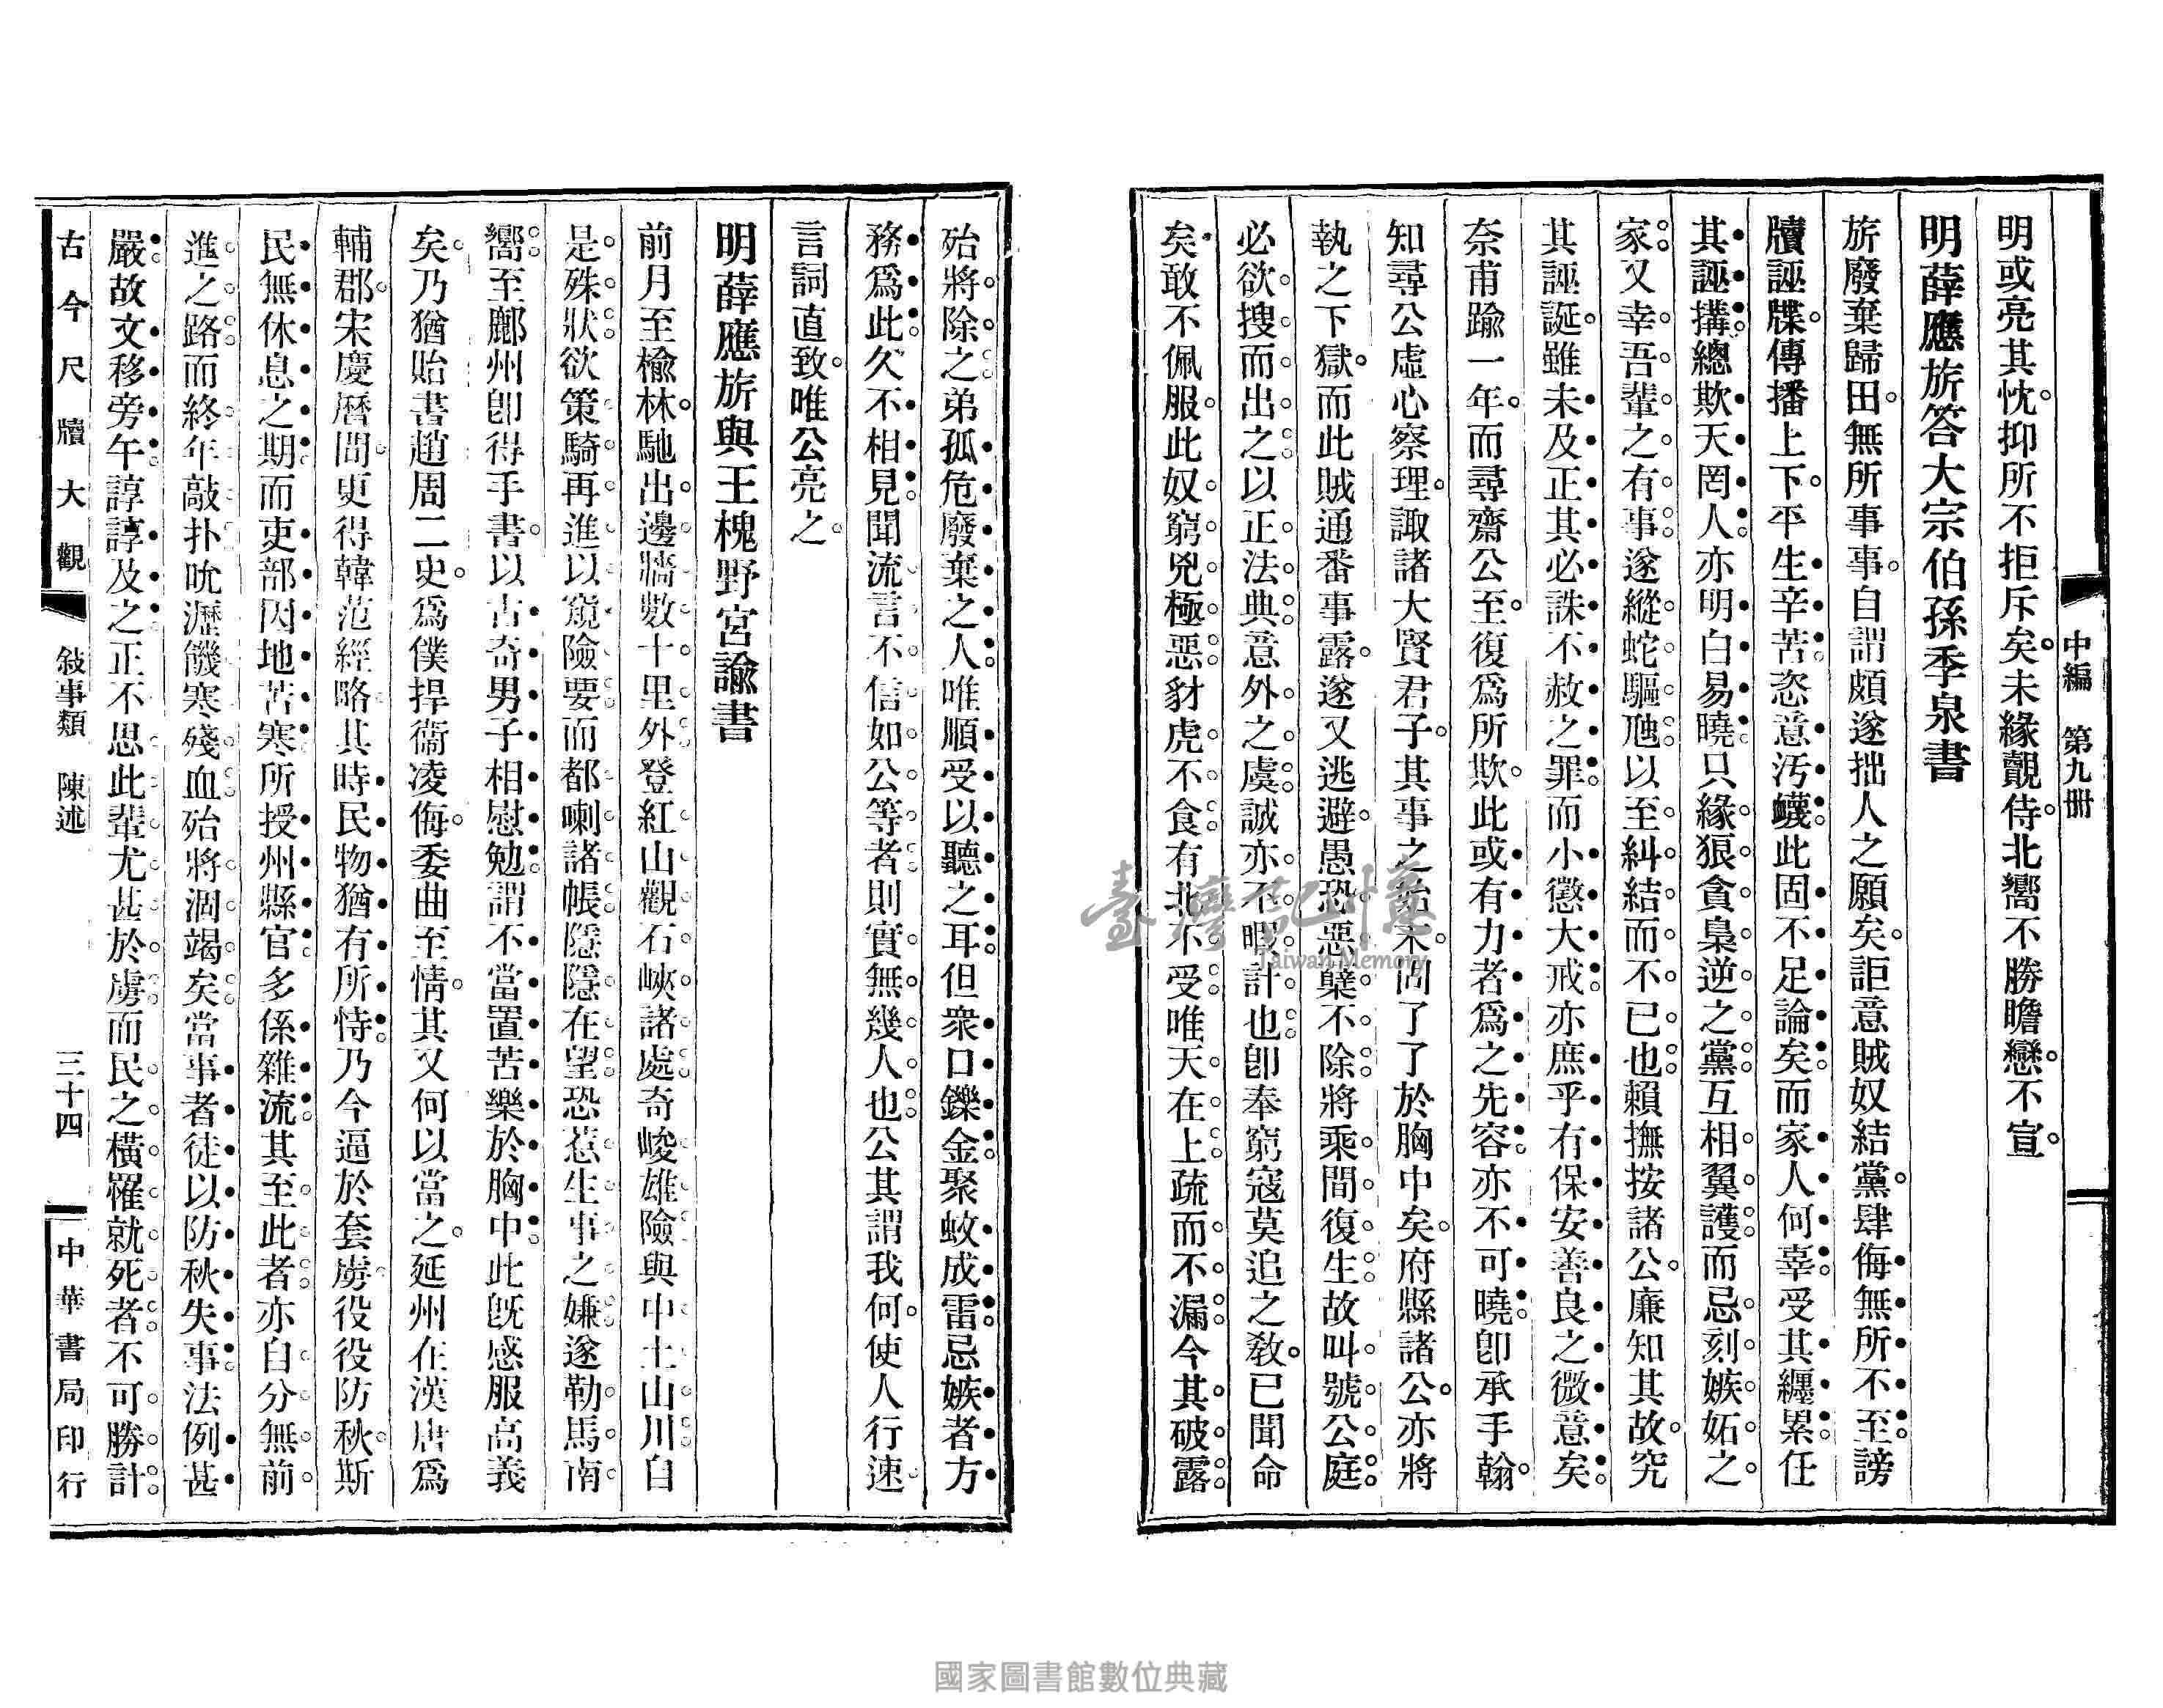 中編　第九冊
明或亮其忱。抑所不拒斥矣。未緣覿侍。北嚮不勝瞻戀。不宣。
明薛應旂答大宗伯孫季泉書
旂廢棄歸田。無所事事。自謂頗遂拙人之願矣。詎意賊奴結黨。肆侮無所不至。謗
牘誣牒。傳播上下。平生辛苦。恣意汚衊。此固不足論矣。而家人何辜。受其纏累。任
其誣搆。總欺天罔人。亦明白易曉。只緣狠貪梟逆之黨。互相翼護。而忌刻嫉妬之
家。又幸吾輩之有事。遂縱蛇驅虺。以至糾結而不已也。賴撫按諸公。廉知其故。究
其誣誕。雖未及正其必誅不赦之罪。而小懲大戒。亦庶乎有保安善良之微意矣。
奈甫踰一年。而尋齋公至。復爲所欺。此或有力者爲之先容。亦不可曉。卽承手翰。
知尋公虛心察理。諏諸大賢君子。其事之始末。固了了於胸中矣。府縣諸公。亦將
執之下獄。而此賊通番事露。遂又逃避。愚恐惡櫱不除。將乘間復生。故叫號公庭。
必欲搜而出之。以正法典。意外之虞。誠亦不暇計也。卽奉窮寇莫追之教。已聞命
矣。敢不佩服。此奴窮兇極惡。豺虎不食。有北不受。唯天在上。疏而不漏。今其破露。
殆將除之。弟孤危廢棄之人。唯順受以聽之耳。但衆口鑠金。聚蚊成雷。忌嫉者方
務爲此。久不相見。聞流言不信如公等者。則實無幾人也。公其謂我何。使人行速。
言詞直致。唯公亮之。
明薛應旂與王槐野宮諭書
前月至楡林。馳出邊牆數十里外。登紅山。觀石峽諸處。奇峻雄險。與中土山川。自
是殊狀。欲策騎再進。以窺險要。而都喇諸帳。隱隱在望。恐惹生事之嫌。遂勒馬南
嚮。至鄜州。卽得手書。以古奇男子相慰勉。謂不當置苦樂於胸中。此旣感服高義
矣。乃猶貽書趙周二史。爲僕捍衞凌侮。委曲至情。其又何以當之。延州在漢唐爲
輔郡。宋慶曆間。更得韓范經略。其時民物猶有所恃。乃今逼於套虜。役役防秋。斯
民無休息之期。而吏部因地苦寒。所授州縣官。多係雜流。其至此者。亦自分無前
進之路。而終年敲扑吮瀝。饑寒殘血。殆將涸竭矣。當事者徒以防秋失事。法例甚
嚴。故文移旁午。諄諄及之。正不思此輩尤甚於虜。而民之橫罹就死者。不可勝計。
古今尺牘大觀　敍事類　陳述　三十四　中華書局印行
臺灣記憶
Taiwan Memory
國家圖書館數位典藏